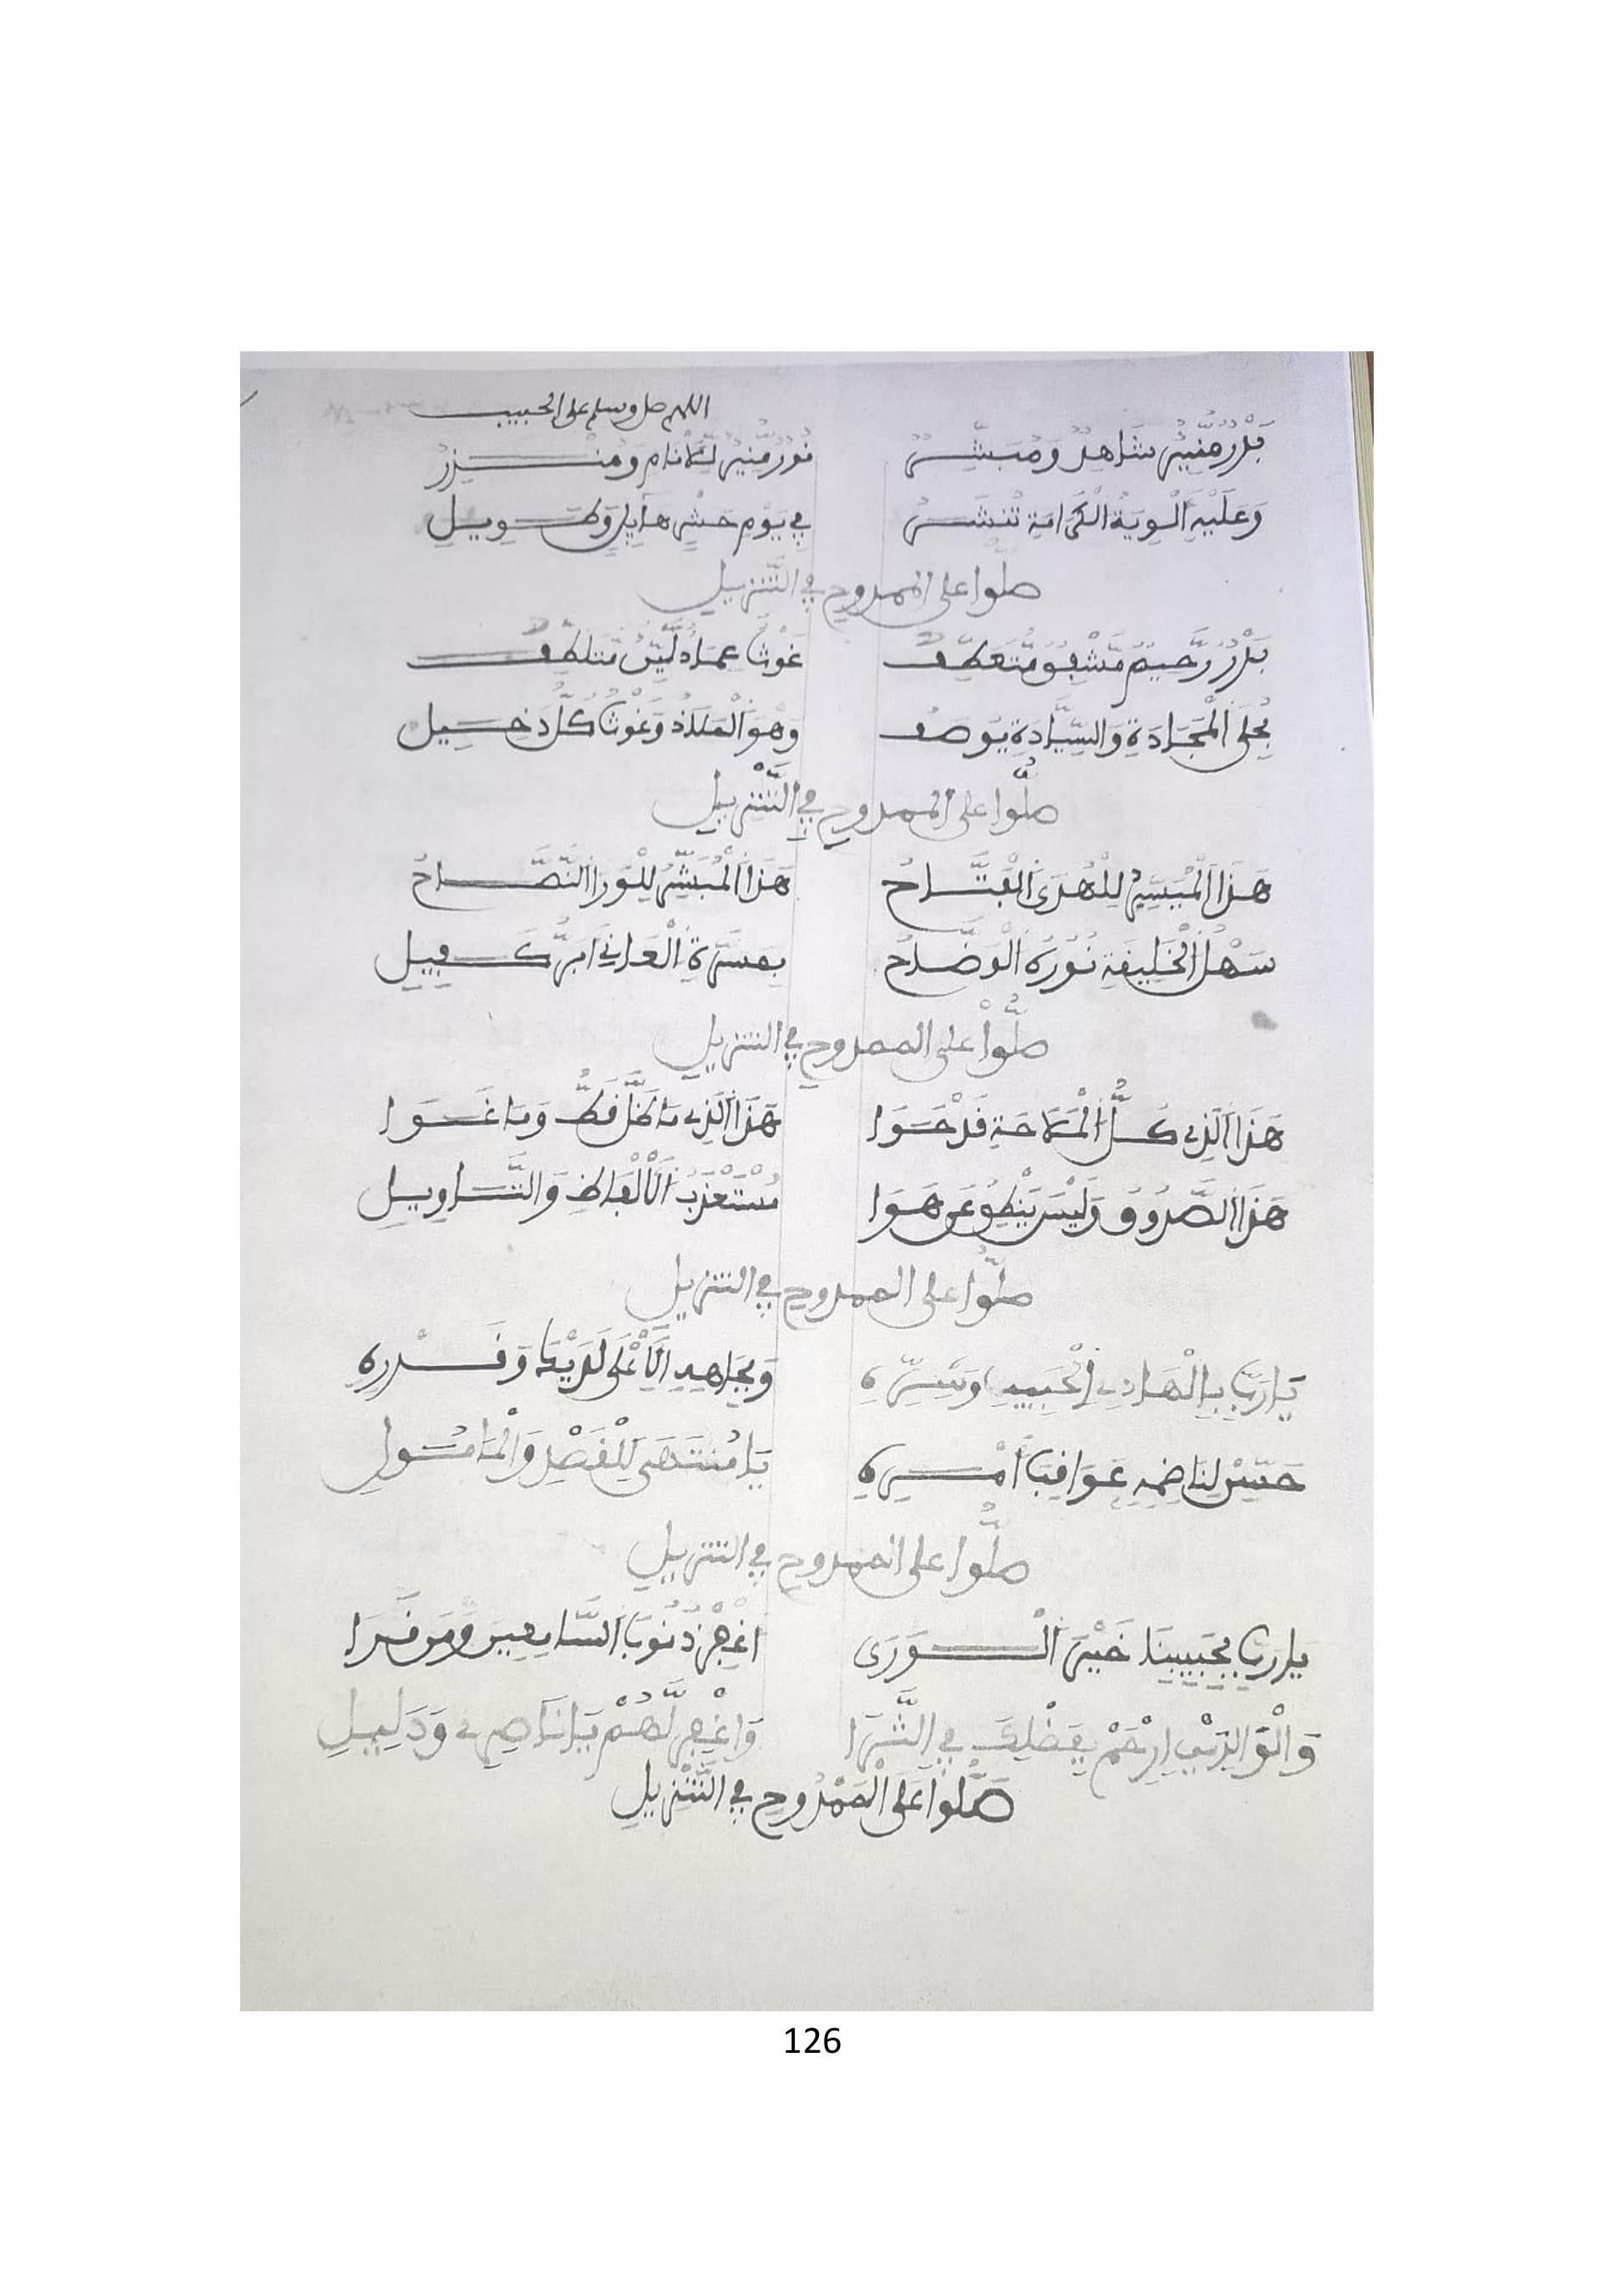 اللهم صل وسلم على الحبيب
بَدْرٌ مُّنِيرٌ شَاهِدٌ وَمُبَشِّرٌ نُورٌ مُّنِيرٌ لِلْأَنَامِ وَمُنْذِرُ
وَعَلَيْهِ أَلْوِيَةُ الْكَرَامَةِ تُنْشَرُ فِي يَوْمِ حَشْرٍ هَآيِلٍ وَطَوِيلِ
صلُّوا على الممدوح في التَّنزيل
بَدْرٌ رَّحِيمٌ مُّشْفِقٌ مُّتَعَطِّفٌ غَوْثٌ عِمَادٌ لَيِّنٌ مُّتَلَطِّفٌ
بِحُلَى الْمَجَادَةِ وَالسِّيَادَةِ يُوصَفُ وَهْوَ الْمَلَاذُ وَغَوْثُ كُلِّ دَخِيلِ
صلُّوا على الممدوح في التَّنْزِيلِ
هَذَا الْمُيَسِّرُ لِلْهُدَى الْفَتَّاحُ هَذَا الْمُبَشِّرُ لِلْوَرَا النَّصَّاحُ
سَهْلُ الْخَلِيفَةِ نُورُهُ الْوَضَّاحُ بِمَسَرَّةِ الْعَانِي أَبَرُّ كَفِيلِ
صلُّوْا على الممدوح في التنزيلِ
هَذَا الَّذِي كُلَّ الْمَلَاحَةِ قَدْ حَوَا هَذَا الَّذِي مَا ظَلَّ قَطُّ وَمَا غَوَا
هَذَا الصَّدُوقُ وَلَيْسَ يَنْطِقُ عَن هَوَا مُسْتَعْذَبُ الْأَلْفَاظِ وَالتَّاوِيلِ
صلُّوا على الممدوح في التنزيل
يَا رَبِّ بِالْهَادِي الْحَبِيبِ وَسِرِّهِ وَبِجَاهِهِ الْأَعْلَى لَدَيْكَ وَقَدْرِهِ
حَسِّنْ لِنَاظِمِهِ عَوَاقِبَ أَمْرِهِ يَا مُنْتَهَى لِلْقَصْدِ وَالْمَامُولِ
صلُّوا على الممدوح في التنزيلِ
يا رَبِّ بِحَبِيبِنَا خَيْرَ الْوَرَى اغْفِرْ ذُنُوبَ السَّامِعِينَ وَمَن قَرَا
وَالْوَالِدَيْنِ ارْحَمْ بِفَضْلِكَ فِي الثَّرَا وَاغْفِر لَّهُمْ يَا نَاصِرِي وَدَلِيلِ
صَلُّوا عَلَى الْمَمْدُوحِ فِي التَّنْزِيلِ
126